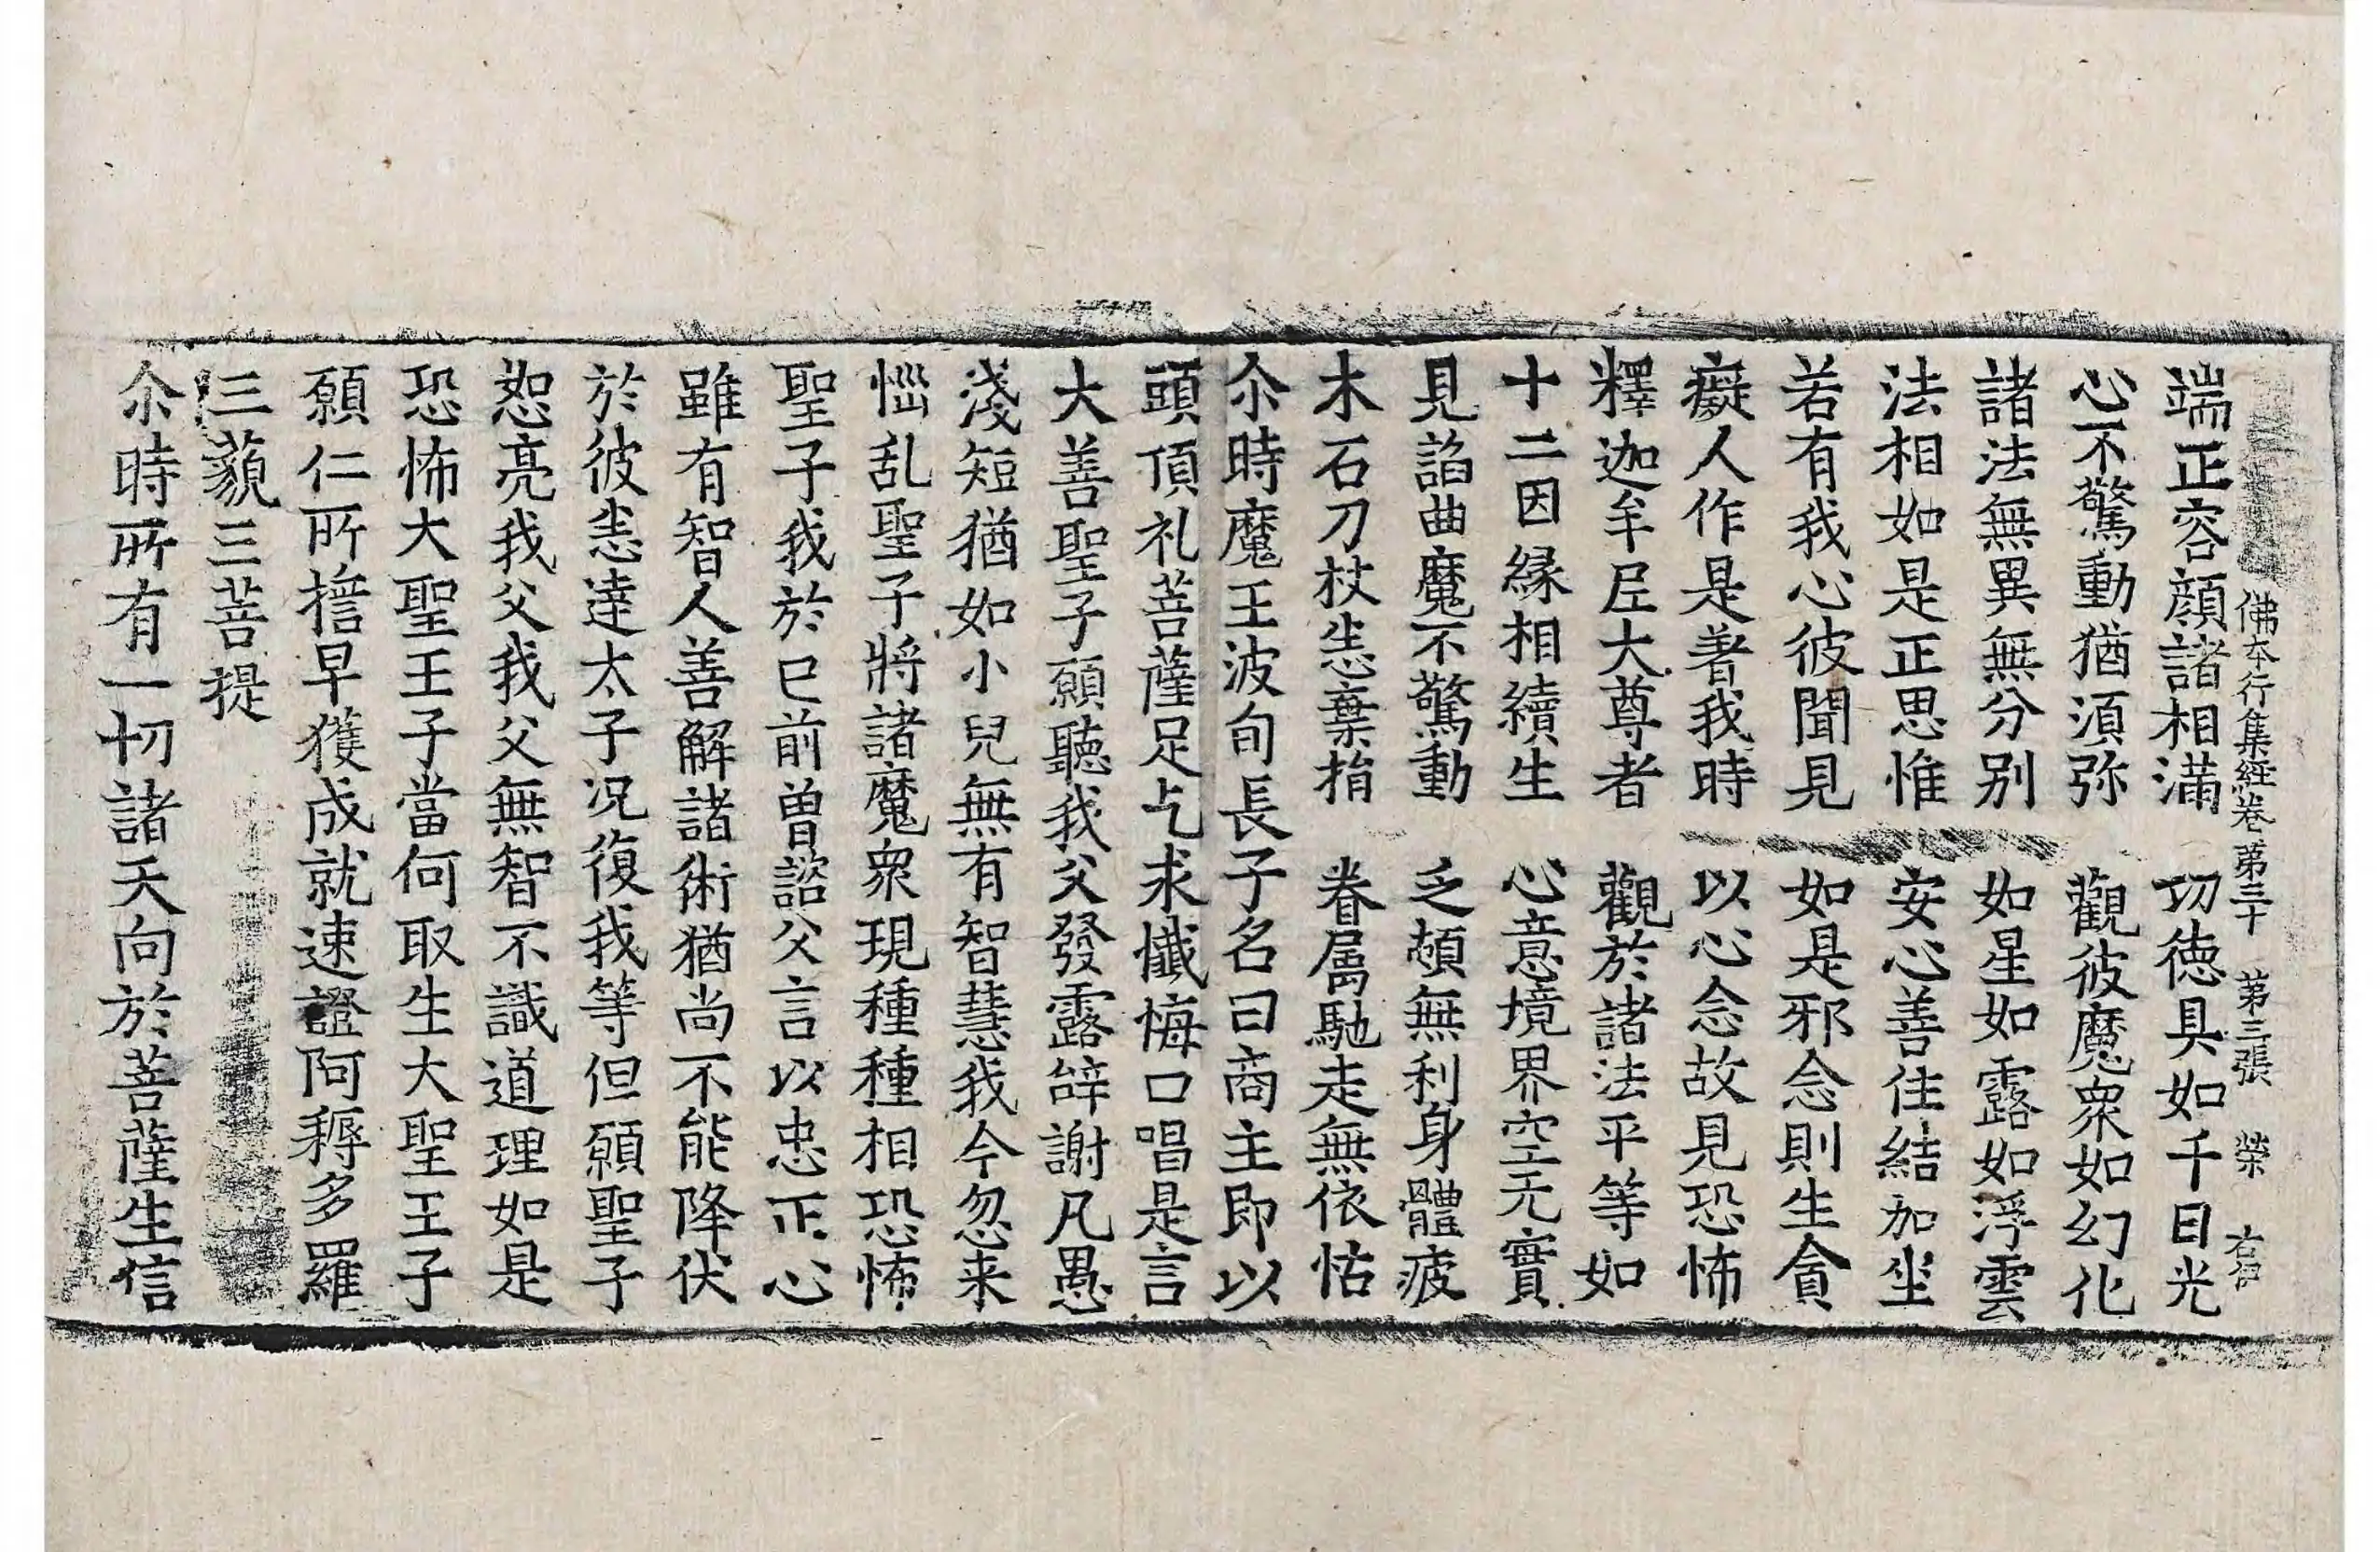 佛本行集經卷第三十　第三張　榮　右伯
端正容顔諸相滿　切德具如千日光
心不驚動猶須弥　觀彼魔衆如幻化
諸法無異無分别　如星如露如浮雲
法相如是正思惟　安心善住結加坐
若有我心彼聞見　如是邪念則生貪
癡人作是著我時　以心念故見恐怖
釋迦牟尼大尊者　觀於諸法平等如
十二因緣相續生　心意境界空无實
見諂曲魔不驚動　乏頓無利身體疲
木石刀杖恙棄捐　眷屬馳走無依怙
尒時魔王波旬長子名曰商主即以
頭頂礼菩薩足乞求懺悔口唱是言
大善聖子願聽我父發露辝謝凡愚
淺短猶如小兒無有智慧我今忽来
惱乱聖子將諸魔衆現種種相恐怖
聖子我於已前曽諮父言以忠正心
雖有智人善解諸術猶尚不能降伏
於彼恙達太子况復我等但願聖子
恕亮我父我父無智不識道理如是
恐怖大聖王子當何取生大聖王子
願仁所擔早獲成就速證阿耨多羅
三藐三菩提
尒時所有一切諸天向於菩薩生信